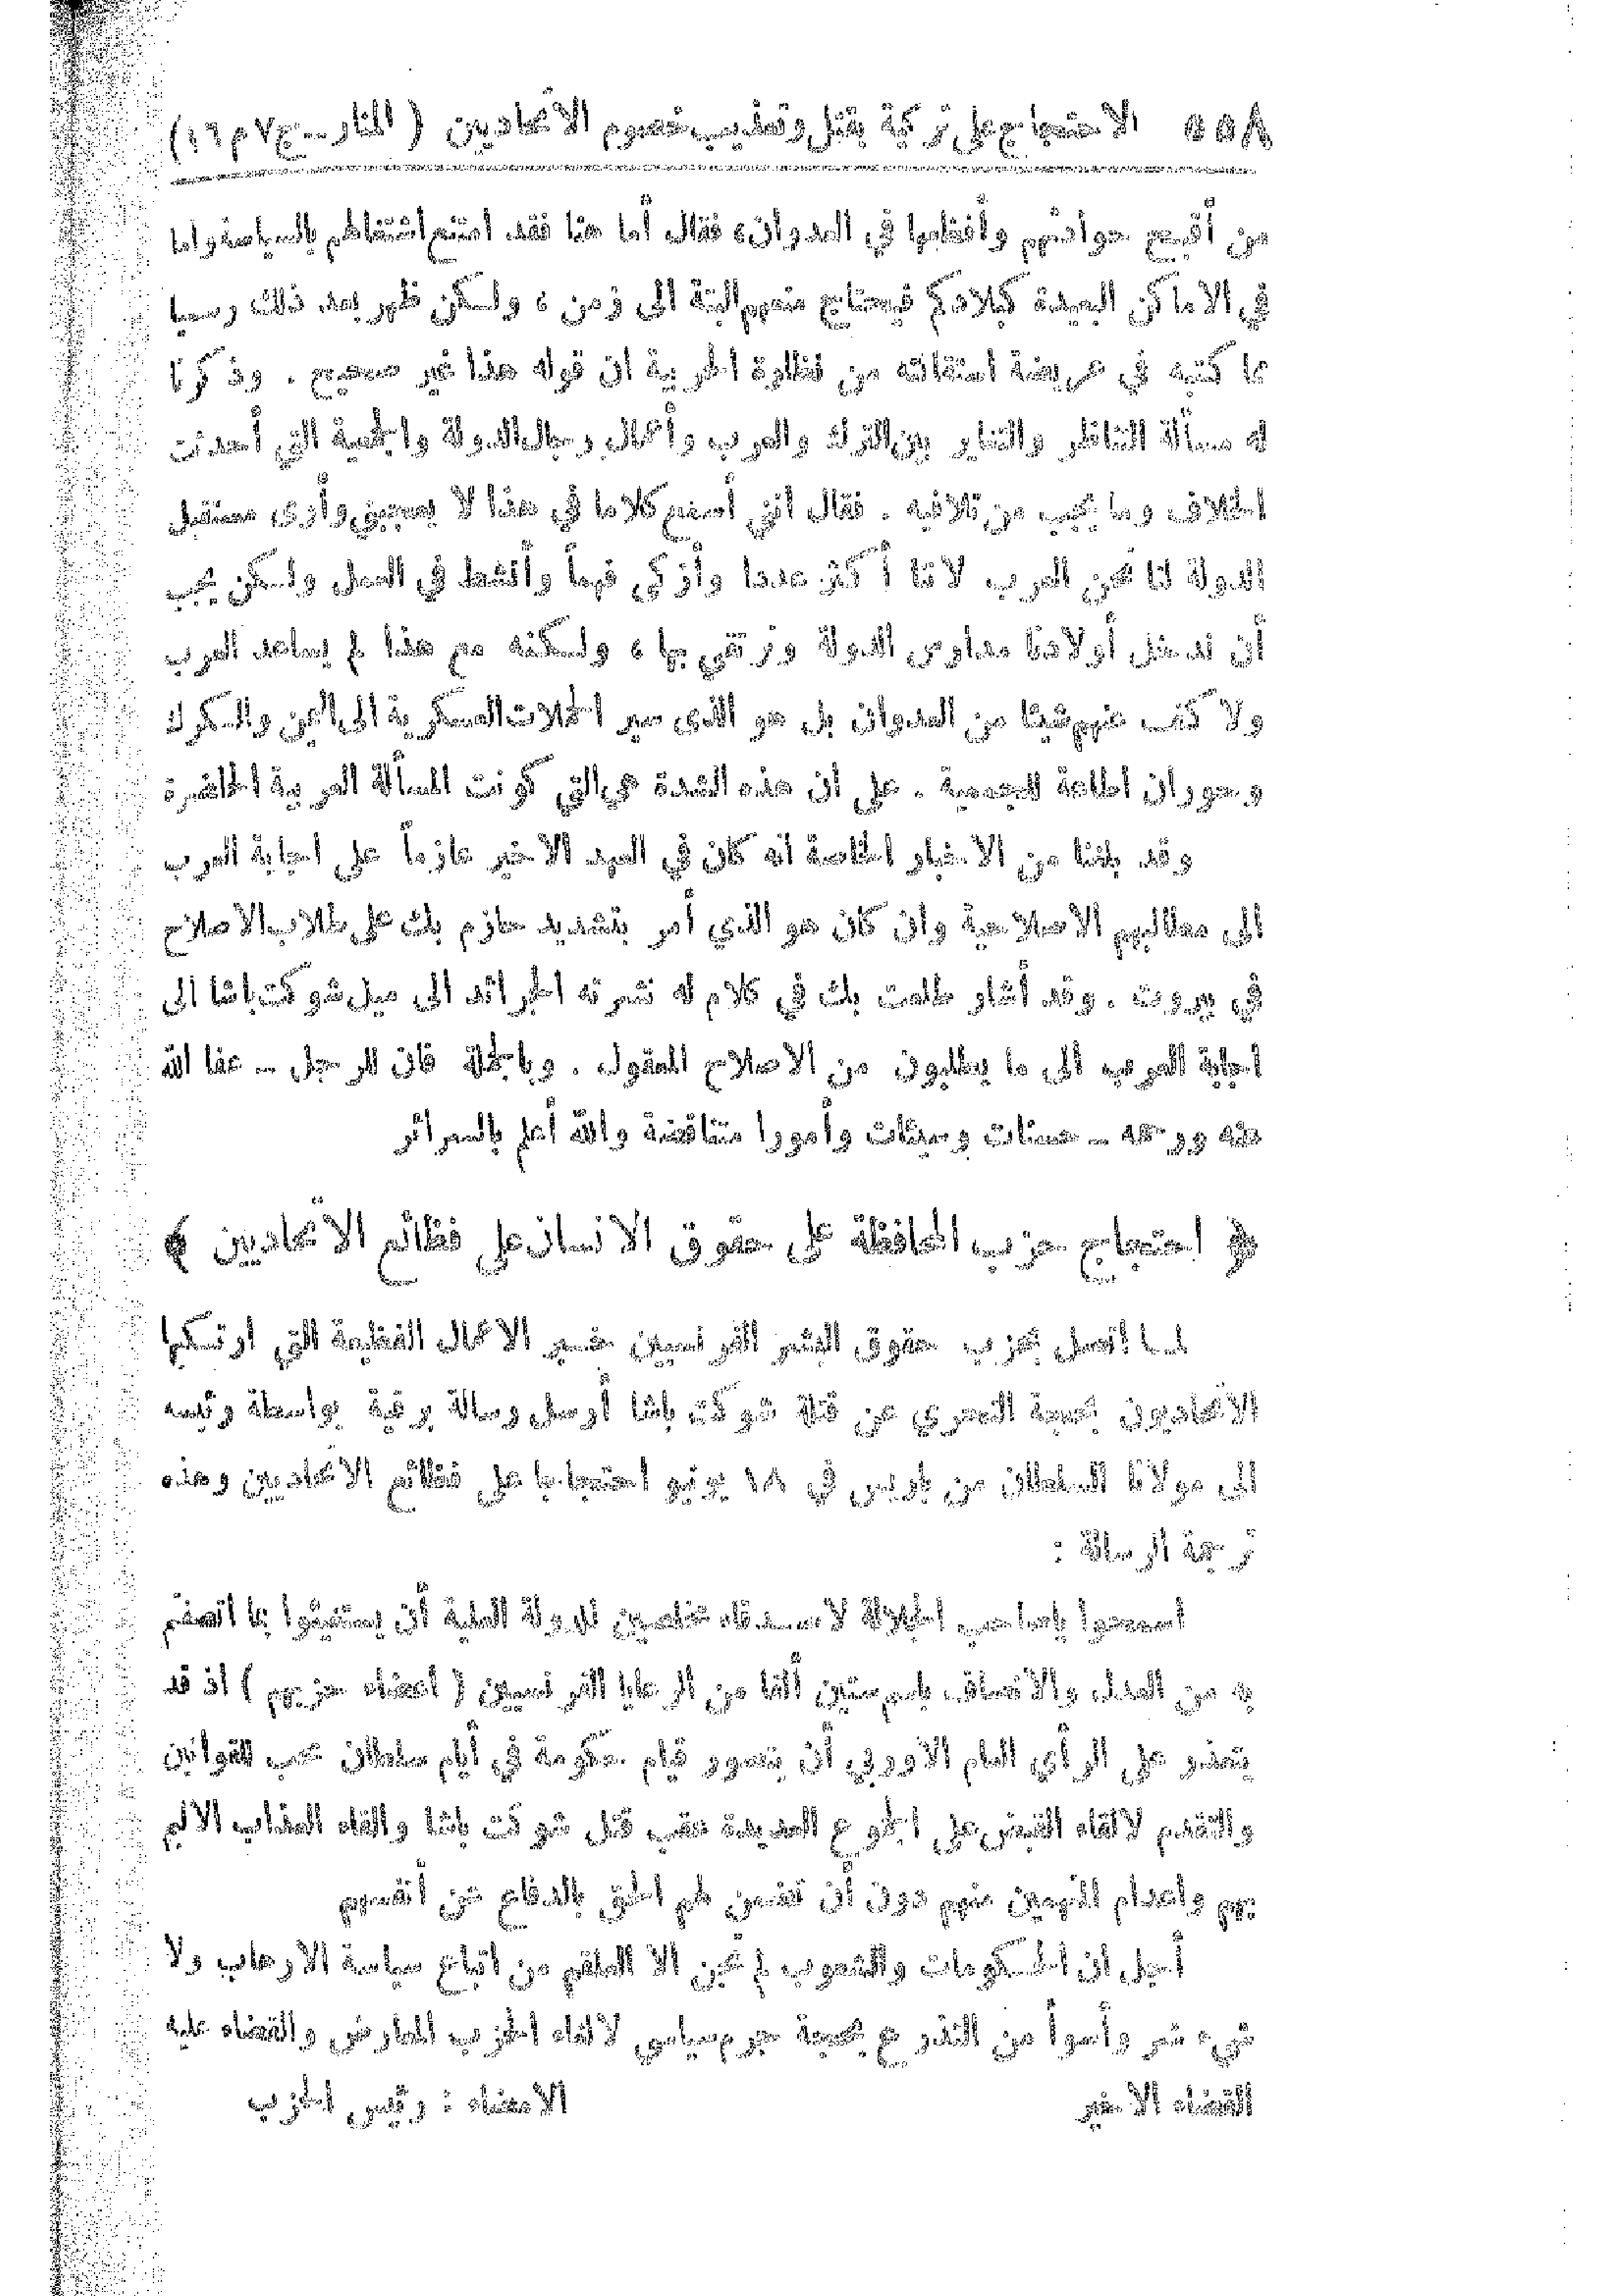 ٥٥٨ الاحتجاج على تركية بقتل وتعذيب خصوم الاتحاديين ( المنار ــ ج٧ م١٦)
من أقبح حوادثهم وأفظعها في العدوان، فقال أما هنا فقد امتنع اشتغالهم بالسياسة واما
في الاماكن البعيدة كبلادكم فيحتاج منعهم البتة الى زمن ، ولكن ظهر بعد ذلك رسميا
بما كتبه في عريضة استقالته من نظارة الحربية ان قوله هذا غير صحيح . وذكرنا
له مسألة التناظر والتغاير بين الترك والعرب وأعمال رجال الدولة والجمعية التي أحدثت
الخلاف وما يجب من تلافيه . فقال انني أسمع كلاما في هذا لا يعجبني وأرى مستقبل
الدولة لنا نحن العرب لاننا أكثر عددا وأزكى فهماً وأنشط في العمل ولكن يجب
أن ندخل أولادنا مدارس الدولة ونرتقي بها ، ولكنه مع هذا لم يساعد العرب
ولا كف عنهم شيئا من العدوان بل هو الذى سير الحملات العسكرية الى اليمن والكرك
وحوران اطاعة للجمعية . على ان هذه الشدة هي التي كونت المسألة العربية الحاضرة
وقد بلغنا من الاخبار الخاصة انه كان في العهد الاخير عازماً على اجابة العرب
الى مطالبهم الاصلاحية وان كان هو الذي أمر بتشديد حازم بك على طلاب الاصلاح
في بيروت . وقد أشار طلعت بك في كلام له نشرته الجرائد الى ميل شوكت باشا الى
اجابة العرب الى ما يطلبون من الاصلاح المعقول . وبالجملة فان للرجل ــ عفا الله
عنه ورحمه ــ حسنات وسيئات وأمورا متناقضة والله أعلم بالسرائر
﴿ احتجاج حزب المحافظة على حقوق الانسان على فظائع الاتحاديين ﴾
لما إتصل بحزب حقوق البشر الفرنسيين خبر الاعمال الفظيعة التي ارتكبها
الاتحاديون بحجة التحري عن قتلة شوكت باشا أرسل رسالة برقية بواسطة رئيسه
الى مولانا السلطان من باريس في ١٨ يونيو احتجاجا على فظائع الاتحاديين وهذه
ترجمة الرسالة :
اسمحوا ياصاحب الجلالة لاصدقاء مخلصين للدولة العلية أن يستغيثوا بما اتصفتم
به من العدل والانصاف باسم ستين ألفا من الرعايا الفرنسيين ( أعضاء حزبهم ) اذ قد
يتعذر على الرأي العام الاوربي أن يتصور قيام حكومة في أيام سلطان محب للقوانين
والتقدم لالقاء القبض على الجموع العديدة عقب قتل شوكت باشا والقاء العذاب الاليم
بهم واعدام المتهمين منهم دون أن تضمن لهم الحق بالدفاع عن أنفسهم
أجل ان الحكومات والشعوب لم تجن الا العلقم من اتباع سياسة الارهاب ولا
شيء شر وأسوأ من التذرع بحجة جرم سياسي لالغاء الحزب المعارض والقضاء عليه
القضاء الاخير الامضاء : رئيس الحزب